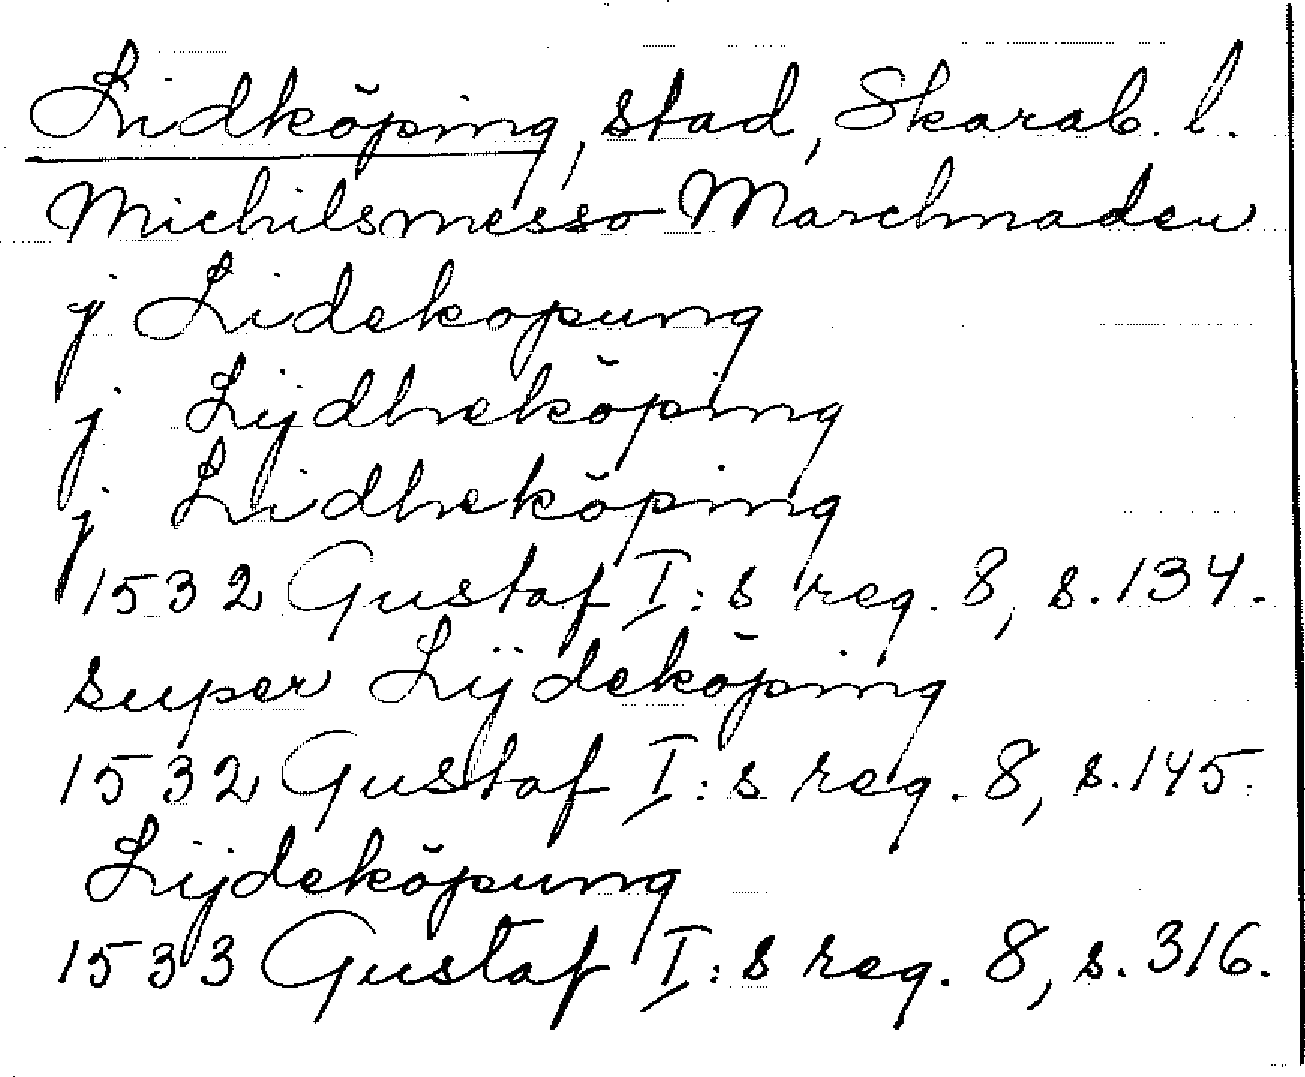 Lidköping, stad, Skarab. l.
Michilsmesso Marchnaden
j Lidekopung
j Lijdheköping
j Lidheköping
1532 Gustaf I:s reg. 8, s. 134.
super Lijdeköping
1532 Gustaf I:s reg. 8, s. 145.
Lijdeköpung
1533 Gustaf I:s reg. 8, s. 316.